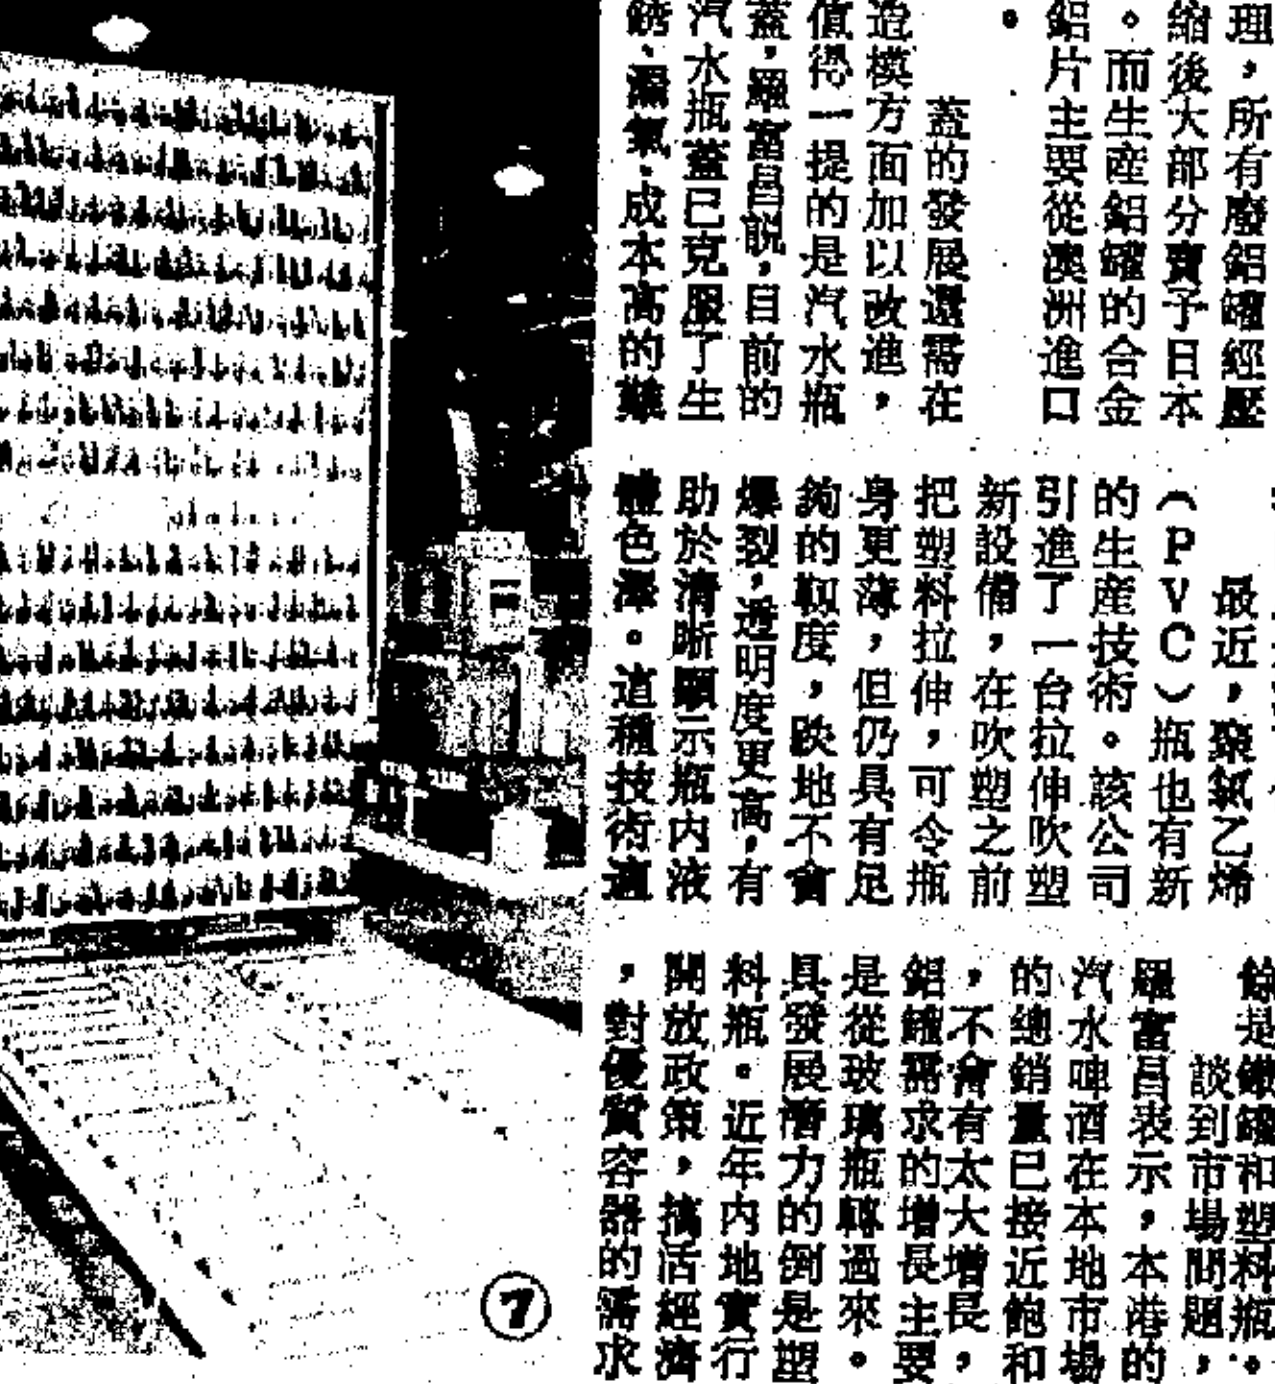 理，所有廢鋁罐經壓
縮後大部分賣予日本
。而生產鋁罐的合金
鋁片主要從澳洲進口
。
蓋的發展還需在
造模方面加以改進，
值得一提的是汽水瓶
蓋，羅富昌說，目前的
汽水瓶蓋已克服了生
銹、漏氣、成本高的難
最近，聚氯乙烯
（PVC）瓶也有新
的生產技術。該公司
引進了一台拉伸吹塑
新設備，在吹塑之前
把塑料拉伸，可令瓶
身更薄，但仍具有足
夠的韌度，跌地不會
爆裂，透明度更高，有
助於清晰顯示瓶內液
體色澤。這種技術適
餘是鐵罐和塑料瓶。
談到市場問題，
羅富昌表示，本港的
汽水啤酒在本地市場
的總銷量已接近飽和
，不會有太大增長，
鋁罐需求的增長主要
是從玻璃瓶轉過來。
具發展潛力的倒是塑
料瓶。近年內地實行
開放政策，搞活經濟
，對優質容器的需求
⑦